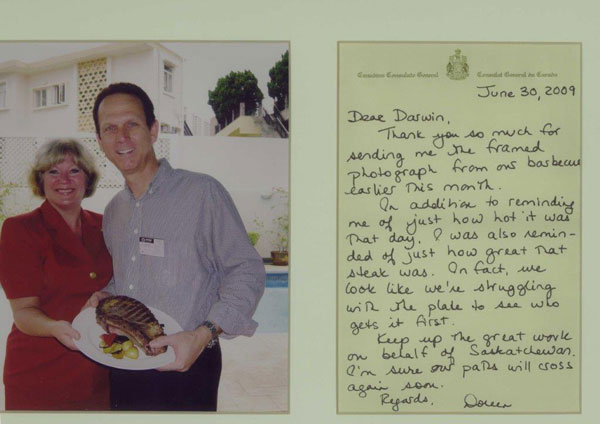 Canadian Consulate General
Consulat General du Canada
June 30, 2009
Dear Darwin,
Thank you so much for
sending me the framed
photograph from our barbecue
earlier this month.
In addition to reminding
me of just how hot it was
that day, I was also remin-
ded of just how great that
steak was. In fact, we
look like we're struggling
with the plate to see who
gets it first.
Keep up the great work
on behalf of Saskatchewan.
I'm sure our paths will cross
again soon.
Regards, Doreen